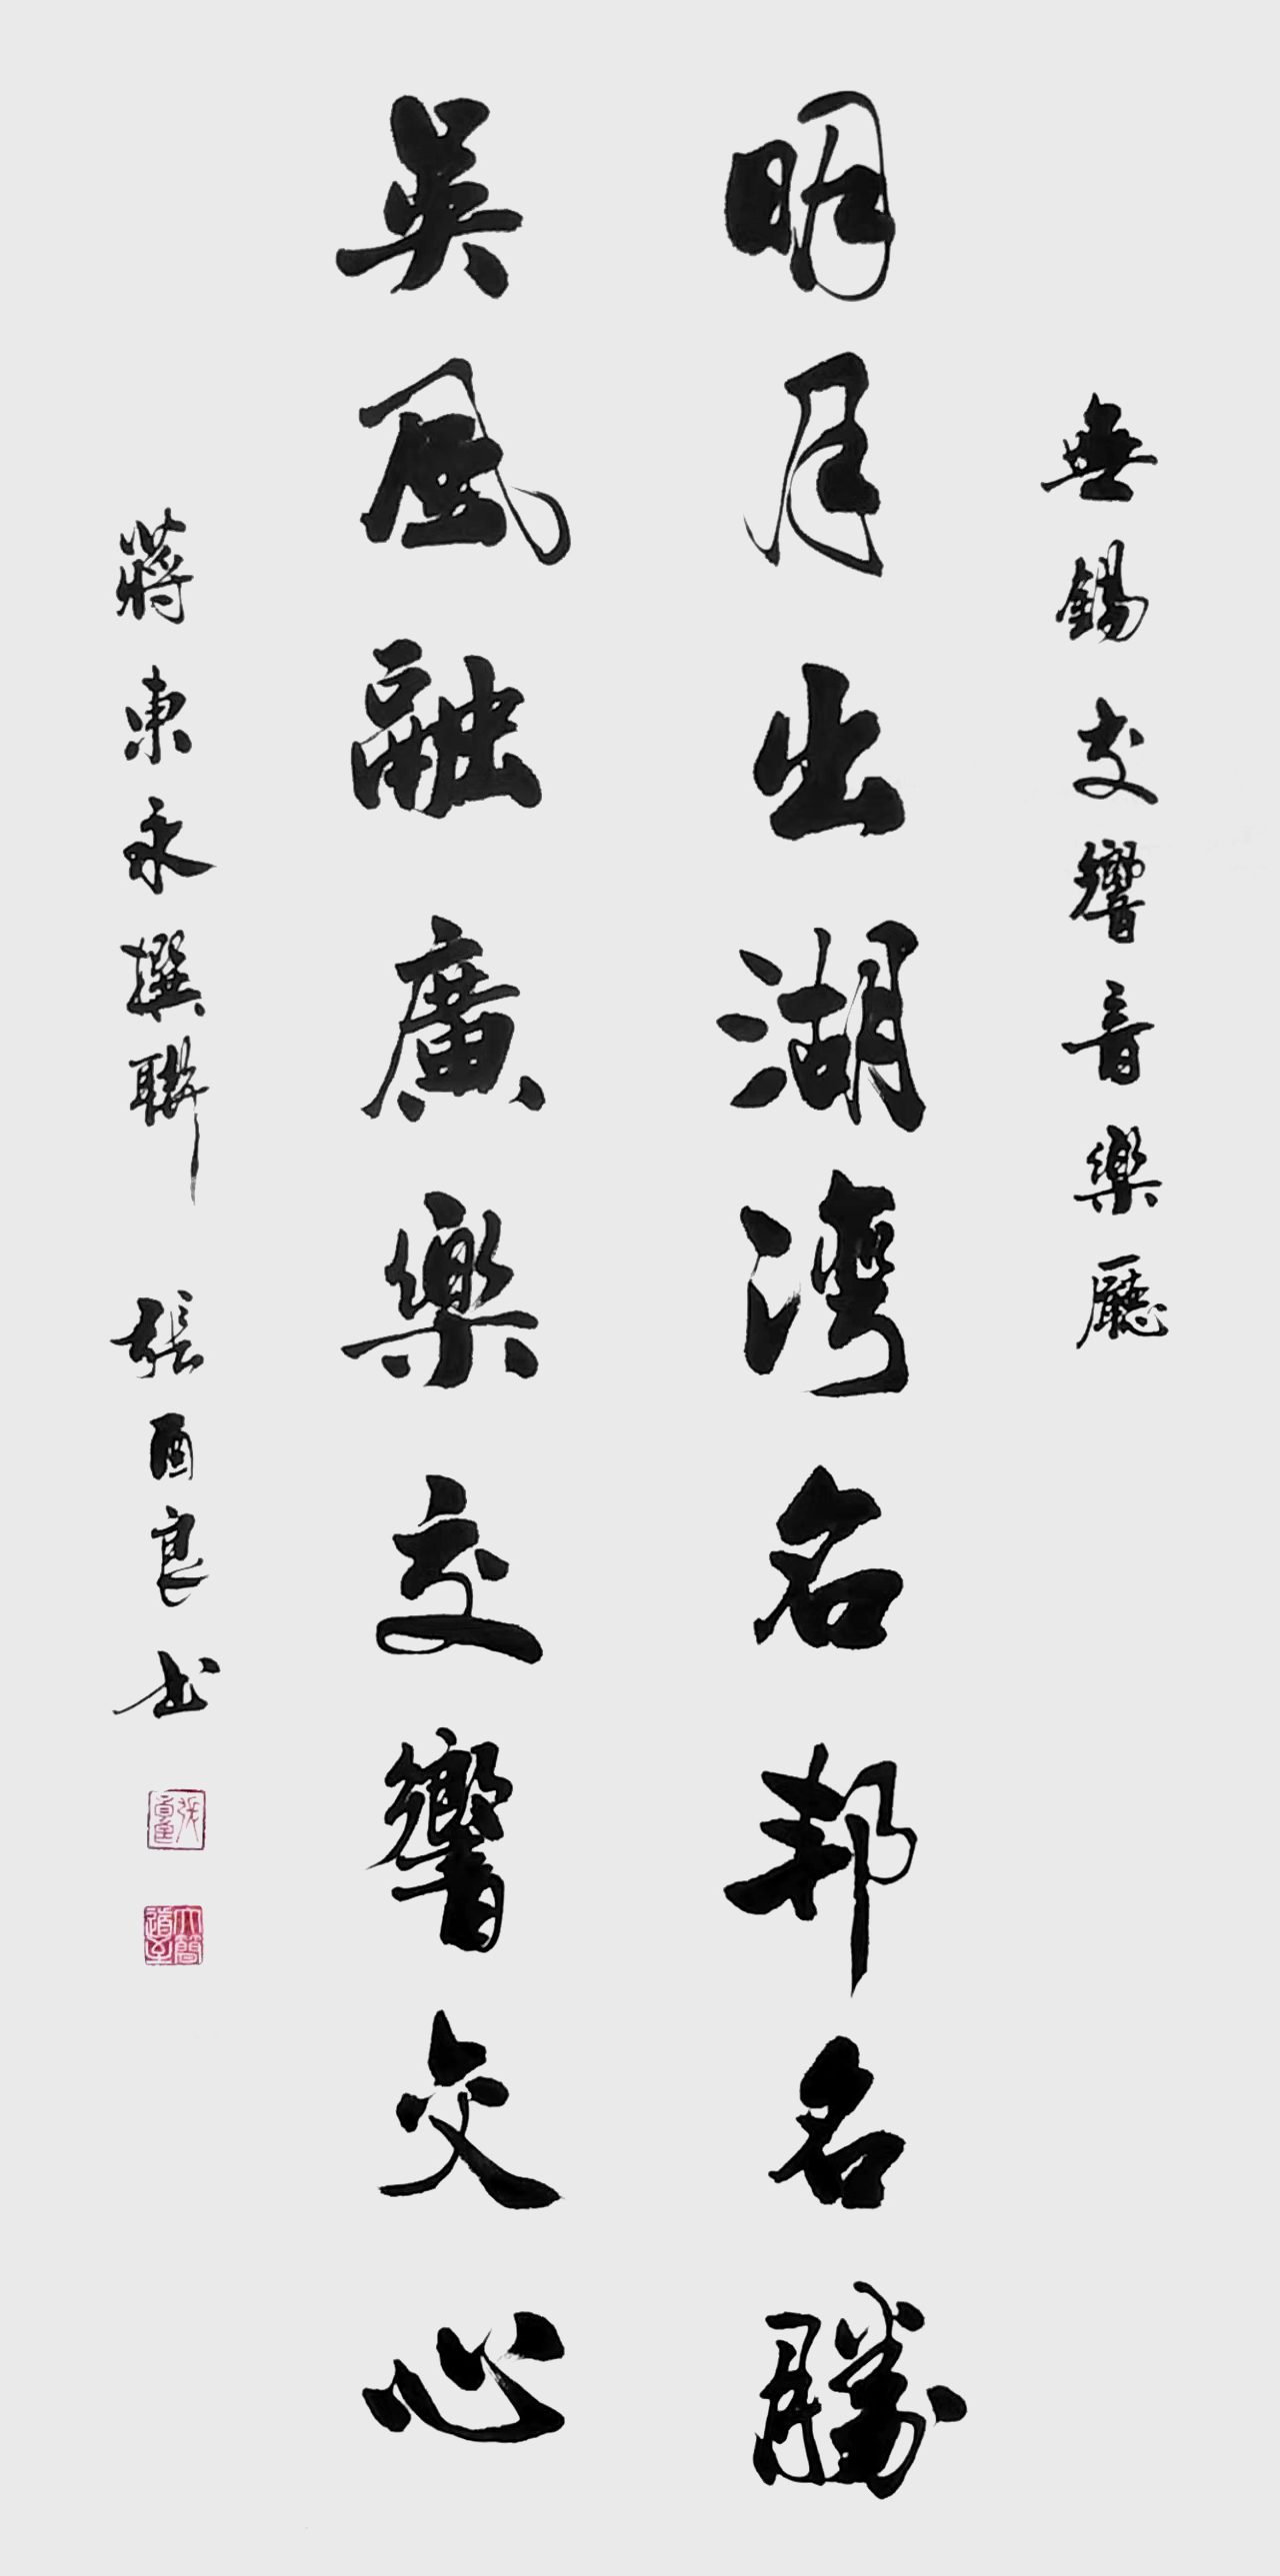 無錫交響音樂廳
明月出湖灣名邦名勝
吳風融廣樂交響交心
蔣東永撰聯 張酉良书
大簡